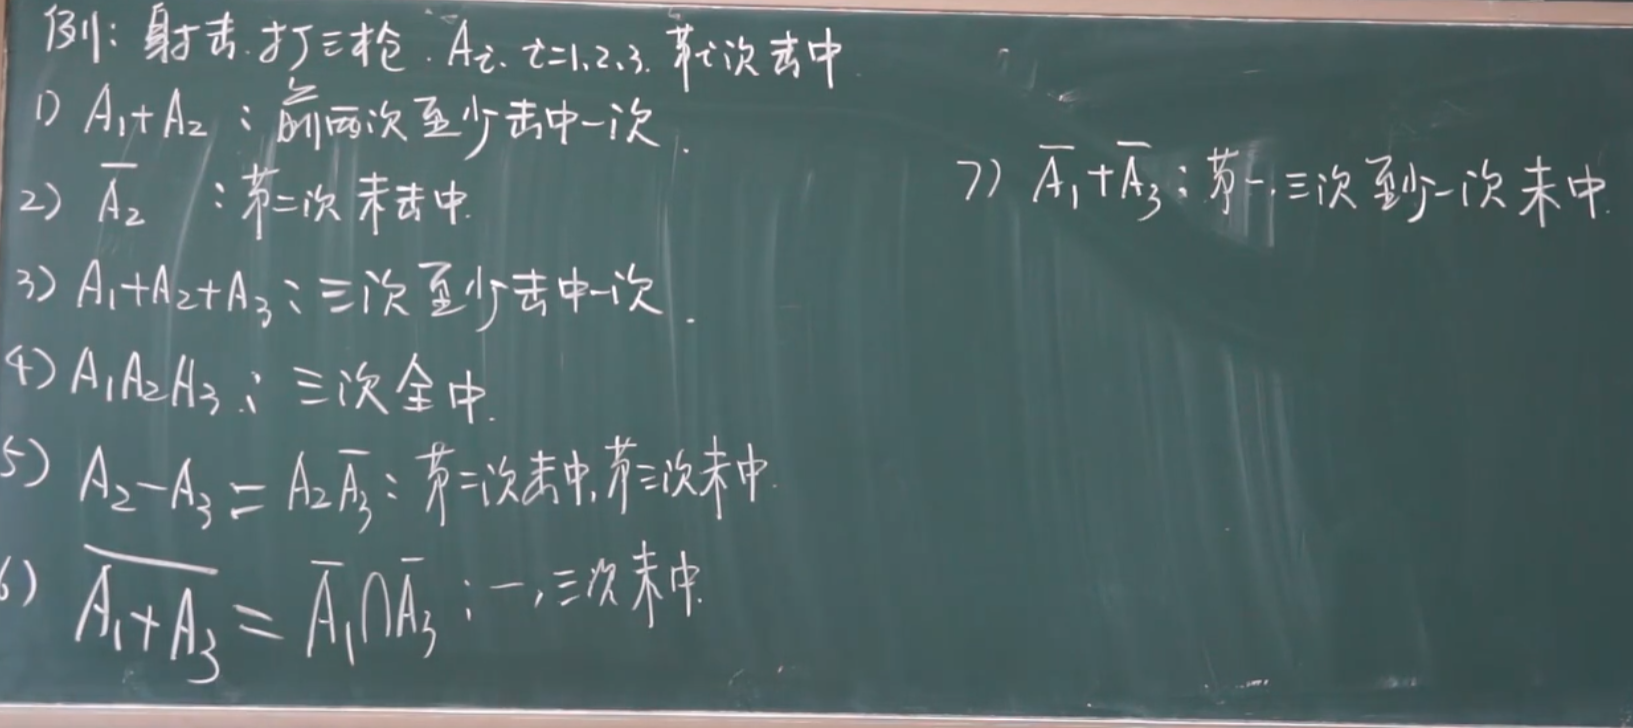 例: 射击. 打三枪. Aᵢ. i=1.2.3. 第i次击中.
1) A₁+A₂ : 前两次至少击中一次.
2) A̅₂ : 第二次未击中.
3) A₁+A₂+A₃ : 三次至少击中一次.
4) A₁A₂A₃ : 三次全中.
5) A₂-A₃ = A₂A̅₃ : 第二次击中, 第三次未中.
6) \overline{A₁+A₃} = A̅₁∩A̅₃ : 一, 三次未中.
7) A̅₁+A̅₃ : 第一, 三次至少一次未中.